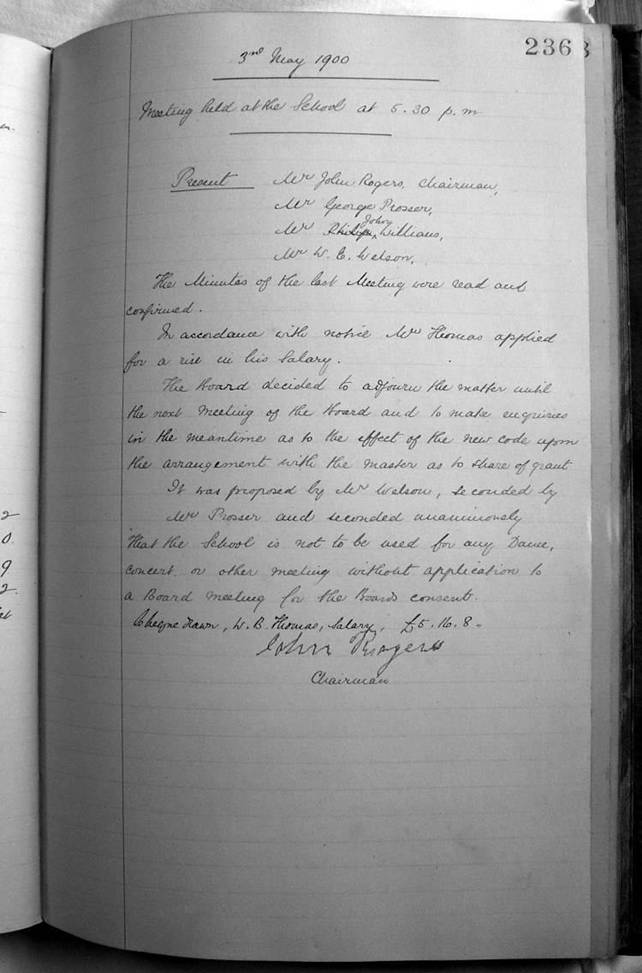 236
3rd May 1900
Meeting held at the School at 5.30 p.m
Present Mr John Rogers, Chairman,
Mr George Prosser,
John
Mr Philip, Williams,
Mr W. E. Welson,
The Minutes of the last Meeting were read and
confirmed.
In accordance with notice Mr Thomas applied
for a rise in his Salary.
The Board decided to adjourn the matter until
the next Meeting of the Board and to make enquiries
in the meantime as to the effect of the new code upon
the arrangement with the master as to share of grant
It was proposed by Mr Welson, seconded by
Mr Prosser and seconded unanimously
that the School is not to be used for any Dance,
concert or other meeting without application to
a Board meeting for the Boards consent.
Cheque drawn, W. B. Thomas, Salary, £5.16.8.
John Rogers
Chairman